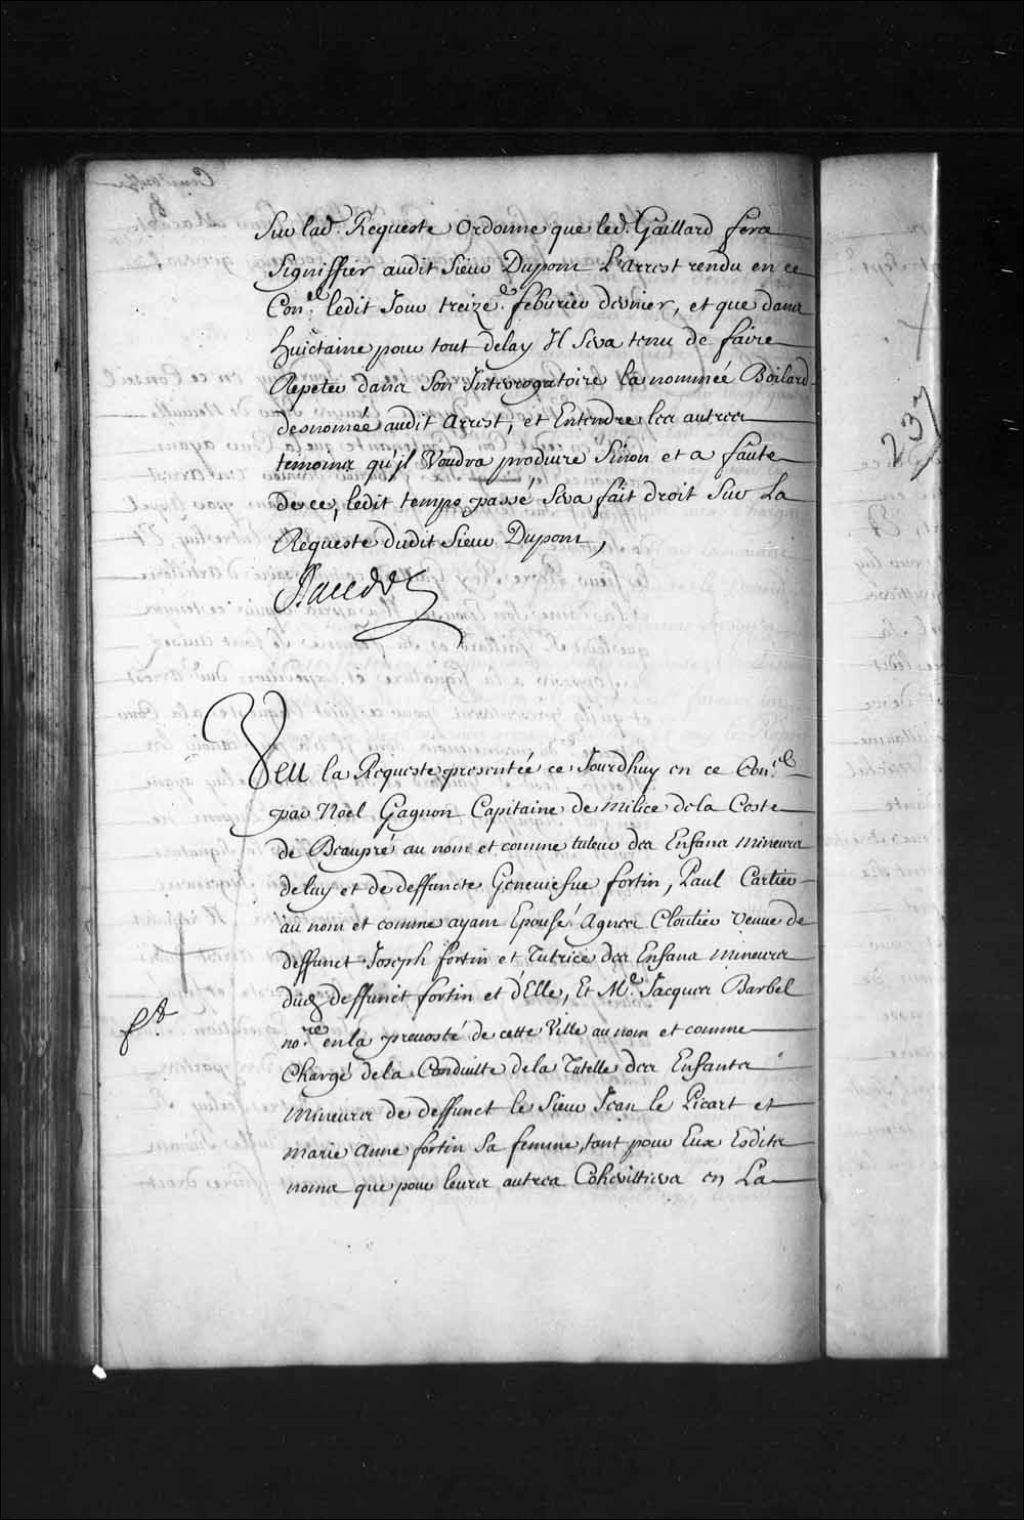 Sur lad. Requeste Ordonne que led. Gaillard fera
Signiffier audit Sieur Dupont L'arrest rendu en ce
Con.el ledit Jour treize.e feburier dernier, et que dans
huictaine pour tout delay Il Sera tenu de faire
Repeter dans Son Interrogatoire la nommeé Boilard
desnoméé audit Arrest, et Entendre les autres
temoins qu'jl Voudra produire Sinon et a faute
de ce, ledit temps passé Sera fait droit Sur La
Requeste dudit Sieur Dupont,
237
Veu la Requeste presentée ce Jourdhuy en ce Con.el
par Noel Gagnon Capitaine de milice dela Coste
de Beaupré au nom et comme tuteur des Enfans mineurs
deluy et de deffuncte Geneuiesue fortin, Paul Cartier
au nom et comme ayant Epousé Agnes Cloutier Veuue de
deffunct Joseph fortin et Tutrice des Enfans mineurs
dud deffunct fortin et d'Elle, Et M.e Jacques Barbel
no.re en la preuosté de cette Ville au nom et comme
Chargé dela Conduitte dela Tutelle des Enfants
mineurs de deffunct le Sieur Jean le Picart et
marie Anne fortin Sa femme, tant pour Eux Esdits
noms que pour leurs autres Cohérittiers en La